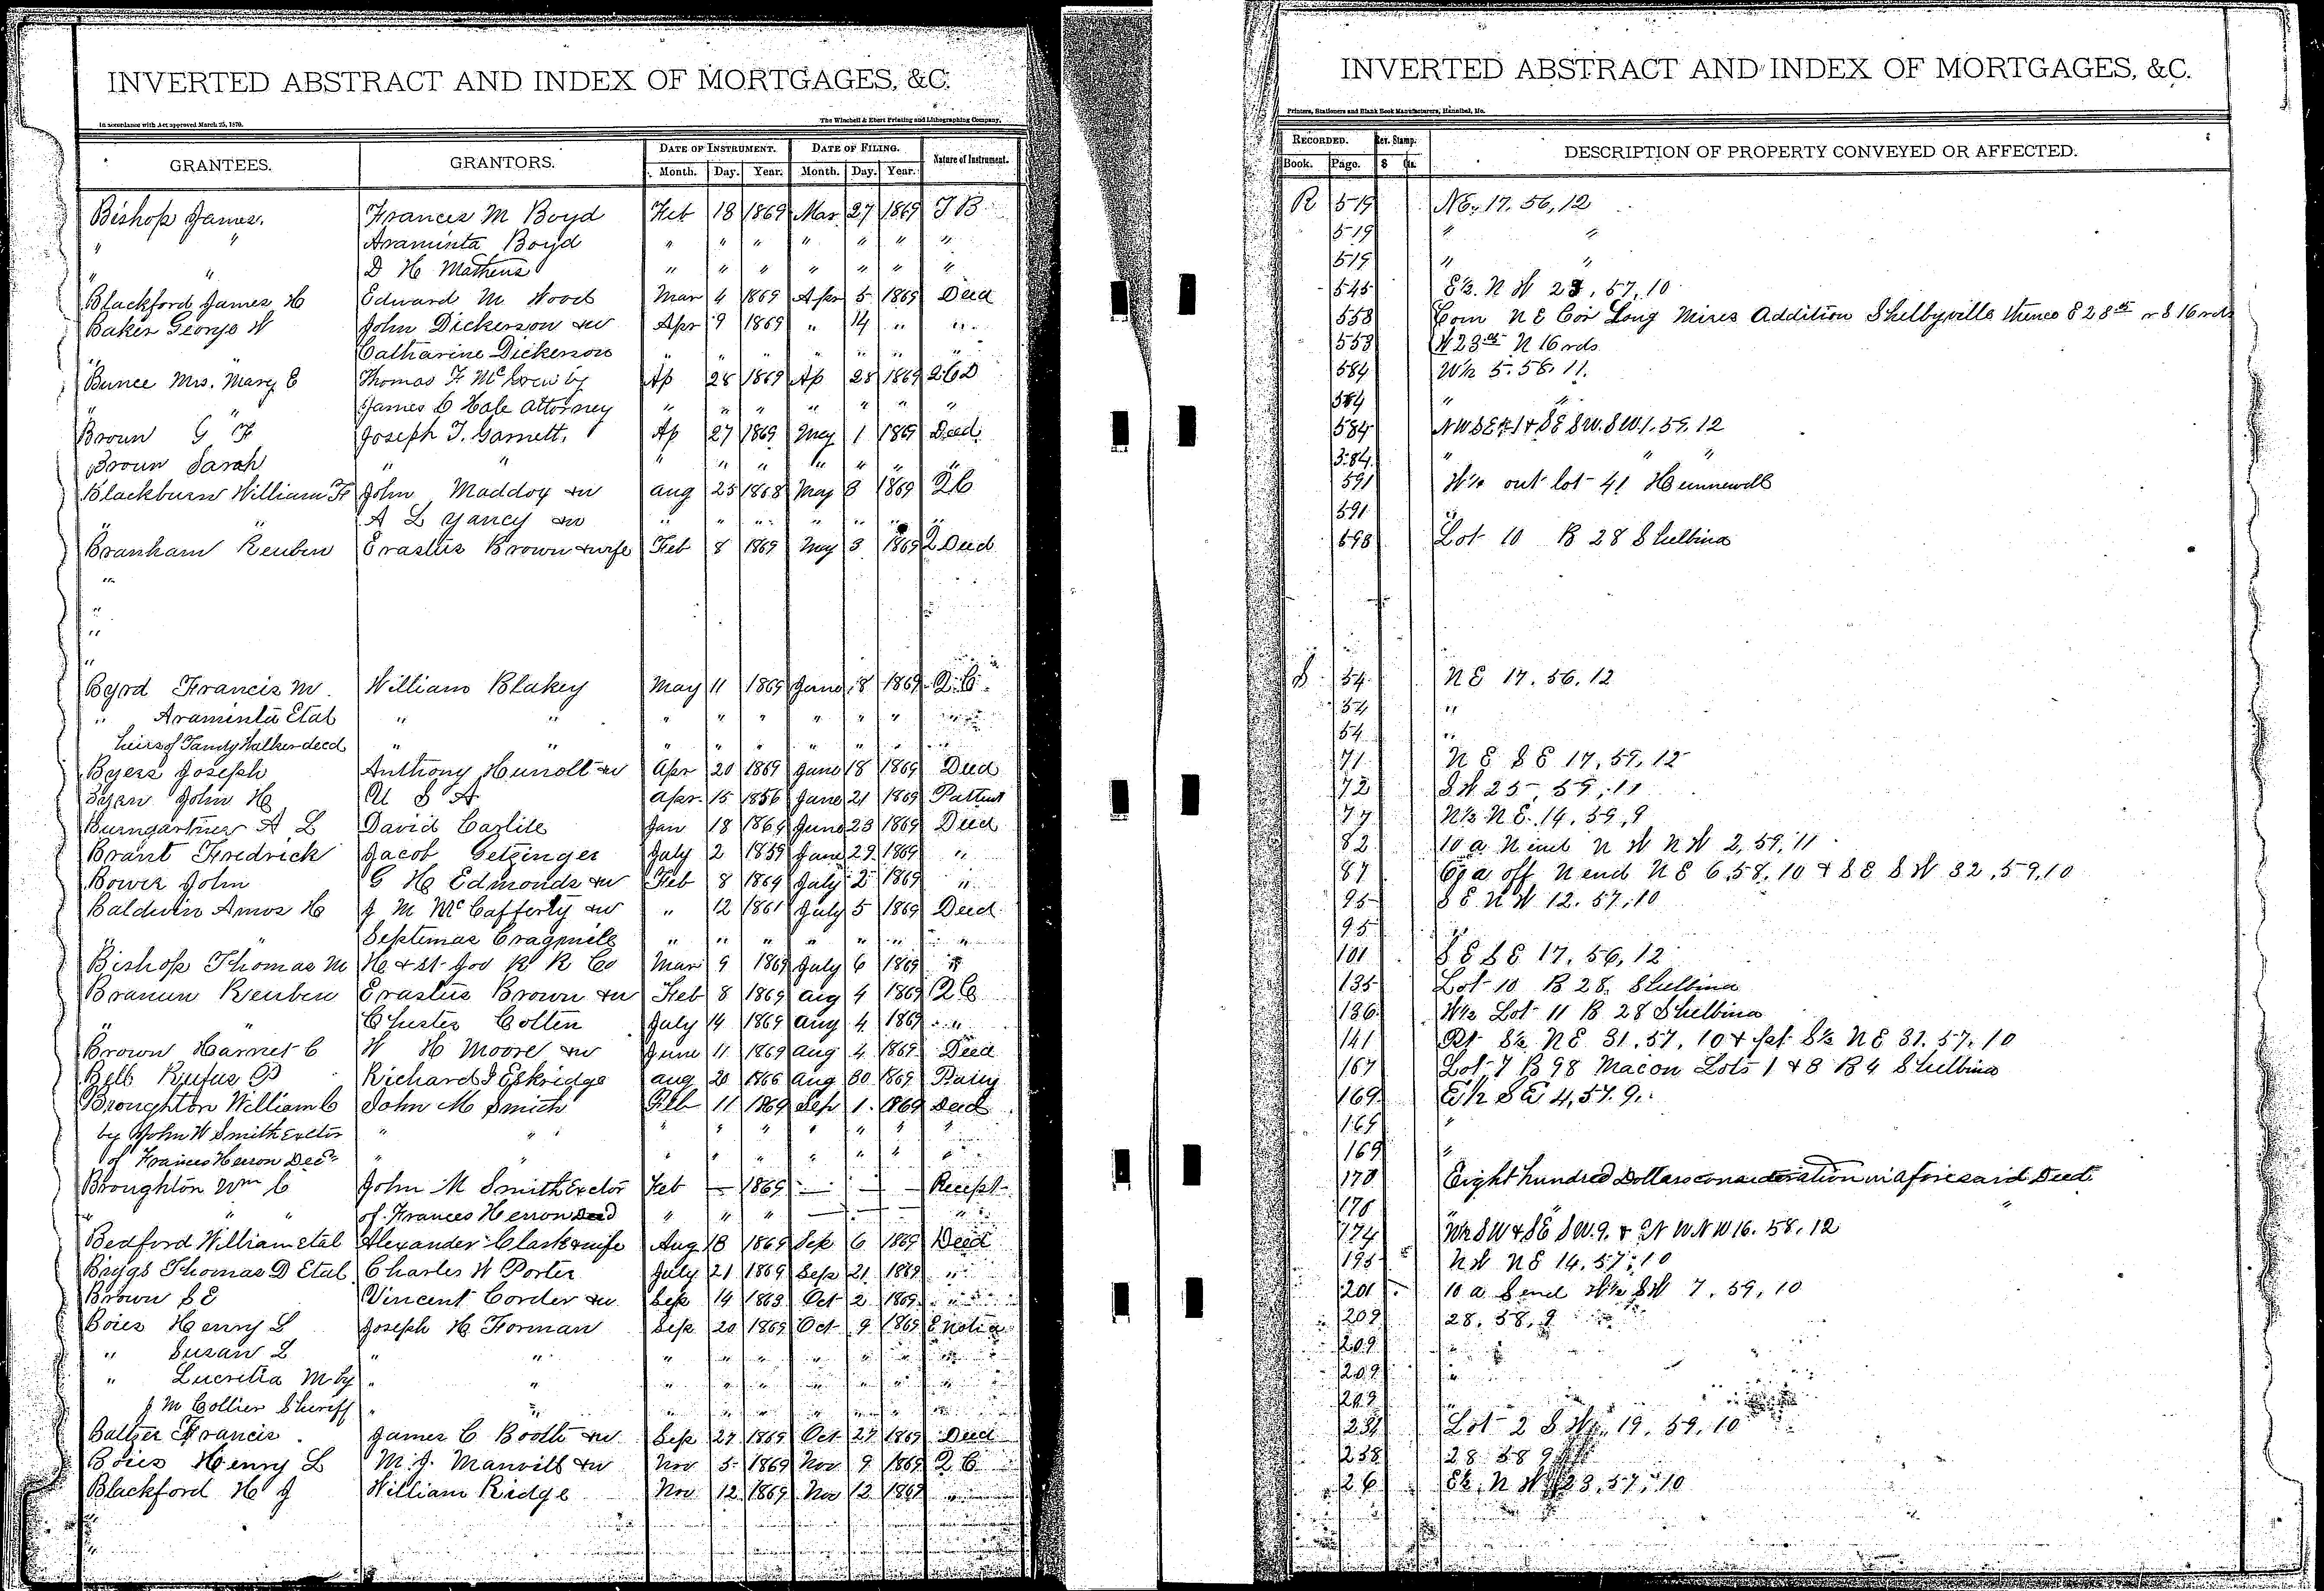 INVERTED ABSTRACT AND INDEX OF MORTGAGES, &C.
In accordance with Act approved March 25, 1870.
The Winchell & Ebert Printing and Lithographing Company,
GRANTEES. GRANTORS. DATE OF INSTRUMENT. DATE OF FILING. Nature of Instrument.
Month. Day. Year. Month. Day. Year.
Bishop James. Francis M Boyd Feb 18 1869 Mar 27 1869 T B
" " Araminta Boyd " " " " " " "
" " D H Mathews " " " " " " "
Blackford James H Edward M Wood Mar 4 1869 Apr 5 1869 Deed
Baker George W John Dickerson &w Apr 9 1869 " 14 " "
" Catharine Dickerson " " " " " " "
Bunce Mrs. Mary E Thomas F McGrew by Ap 28 1869 Ap 28 1869 2 C D
" " James C Hale Attorney " " " " " " "
Broun G F Joseph T. Garnett, Ap 27 1869 May 1 1869 Deed
Broun Sarah " " " " " " " " "
Blackburn William F John Maddox &w Aug 25 1868 May 3 1869 2C
" " A L Yancy &w " " " " " " "
Branham Reuben Erastus Brown &wife Feb 8 1869 May 3 1869 2 Deed
"
"
"
"
Byrd Francis M. William Blakey May 11 1869 June 8 1869 Q.C.
" Araminta Etal " " " " " " " " "
heirs of Tandy Walker deed " " " " " " " " "
Byers Joseph Anthony Hunolt &w Apr 20 1869 June 18 1869 Deed
John H U S A Apr. 15 1856 June 21 1869 Pattent
Bumgartner A L David Carlile Jan 18 1869 June 23 1869 Deed
Brant Fredrick Jacob Getzinger July 2 1859 June 29 1869 "
Bower John G H Edmonds &w Feb 8 1869 July 2 1869 "
Baldwin Amos H J M McCafferty &w " 12 1861 July 5 1869 Deed
" " Septemas Cragmile " " " " " " "
Bishop Thomas M H & St Joe R R Co Mar 9 1869 July 6 1869 "
Branun Reuben Erastus Brown &w Feb 8 1869 Aug 4 1869 2C
" " Chester Colten July 14 1869 Aug 4 1869 "
Brown Harriet C W H Moore &w June 11 1869 Aug 4 1869 Deed
Bell Rufus Richard J Eskridge Aug 20 1866 Aug 30 1869
Broughton William C John M Smith Feb 11 1869 Sep 1 1869 Deed
by John W Smith Exctor " " " " " " " " "
of Frances Herron Decd " " " " " " " " "
Broughton Wm C John M Smith Exctor Feb — 1869 — — — Recept
" " of Frances Herron Deed " " " — — "
Bedford William etal Alexander Clark &wife Aug 18 1869 Sep 6 1869 Deed
Biggs Thomas D Etal Charles W Porter July 21 1869 Sep 21 1869 "
Brown S E Vincent Corder &w Sep 14 1869 Oct 2 1869 "
Boies Henry L Joseph H Forman Sep 20 1869 Oct 9 1869
" Susan L " " " " " " " " "
" Lucretia M by " " " " " " " " "
J M Collier Sheriff " " " " " " " " "
Baltzer Francis James C Booth &w Sep 27 1869 Oct 27 1869 Deed
Boies Henry L M. J. Manvill &w Nov 5 1869 Nov 9 1869 2 C
Blackford H J William Ridge Nov 12 1869 Nov 12 1869 "
INVERTED ABSTRACT AND INDEX OF MORTGAGES, &C.
Printers, Stationers and Blank Book Manufacturers, Hannibal, Mo.
RECORDED. Rev. Stamp. DESCRIPTION OF PROPERTY CONVEYED OR AFFECTED.
Book. Page. $ Cts.
R 519 NE, 17. 56, 12
519 " "
519 " "
545 E½. N W 23, 57, 10
553 Com N E Cor Long Mires Addition Shelbyville thence S 28 16 rds
553 N 16 rds
584 W½ 5. 58. 11.
584 "
584 S W. S W 1. 59. 12
584 " " "
591 out lot 41 Hunnewell
591 "
598 Lot 10 B 28 Shelbina
S 54 N E 17. 56. 12
54 "
54 "
71 N E S E 17, 59, 12
72 S W 25, 59, 11
77 N½ N E. 14, 59, 9
82 10 a N end N W N W 2, 59, 11
87 off N end N E 6, 58, 10 & S E S W 32, 59, 10
95 S E N W 12. 57, 10
95 "
101 S E S E 17. 56, 12
135 Lot 10 B 28. Shelbina
136 W½ Lot 11 B 28 Shelbina
141 Pt S½ N E 31, 57, 10 & pt S½ N E 31. 57, 10
167 Lot 7 B 98 Macon Lots 1 & 8 B 4 Shelbina
169 E½ S E 4, 57. 9.
169 "
169 "
170 Eight hundred Dollars consideration in aforesaid Deed
170 " "
174 W½ S W & S E S W. 9. & N W N W 16. 58. 12
195 N W N E 14. 57, 10
201 10 a S end W½ S W 7. 59, 10
209 28. 58. 9
209 "
209 "
209 "
Lot 2 S W 19. 59. 10
238 28 58 9
26 E½. N W 23, 57, 10